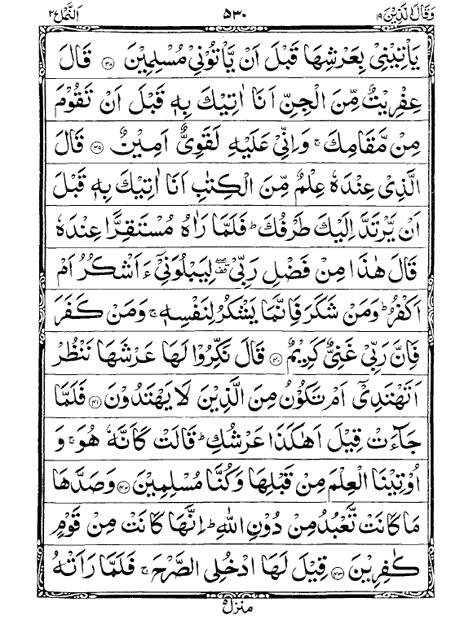 وَقَالَ الَّذِيْنَ ١٩ ٥٣٠ اَلنَّمْل ٢٧
يَاْتِيْنِيْ بِعَرْشِهَا قَبْلَ اَنْ يَّاْتُوْنِيْ مُسْلِمِيْنَ ﴿٣٨﴾ قَالَ
عِفْرِيْتٌ مِّنَ الْجِنِّ اَنَا اٰتِيْكَ بِهٖ قَبْلَ اَنْ تَقُوْمَ
مِنْ مَّقَامِكَ ۚ وَاِنِّيْ عَلَيْهِ لَقَوِيٌّ اَمِيْنٌ ﴿٣٩﴾ قَالَ
الَّذِيْ عِنْدَهٗ عِلْمٌ مِّنَ الْكِتٰبِ اَنَا اٰتِيْكَ بِهٖ قَبْلَ
اَنْ يَّرْتَدَّ اِلَيْكَ طَرْفُكَ ؕ فَلَمَّا رَاٰهُ مُسْتَقِرًّا عِنْدَهٗ
قَالَ هٰذَا مِنْ فَضْلِ رَبِّيْ ۖ لِيَبْلُوَنِيْٓ ءَاَشْكُرُ اَمْ
اَكْفُرُ ؕ وَمَنْ شَكَرَ فَاِنَّمَا يَشْكُرُ لِنَفْسِهٖ ۚ وَمَنْ كَفَرَ
فَاِنَّ رَبِّيْ غَنِيٌّ كَرِيْمٌ ﴿٤٠﴾ قَالَ نَكِّرُوْا لَهَا عَرْشَهَا نَنْظُرْ
اَتَهْتَدِيْٓ اَمْ تَكُوْنُ مِنَ الَّذِيْنَ لَا يَهْتَدُوْنَ ﴿٤١﴾ فَلَمَّا
جَآءَتْ قِيْلَ اَهٰكَذَا عَرْشُكِ ؕ قَالَتْ كَاَنَّهٗ هُوَ ۚ وَ
اُوْتِيْنَا الْعِلْمَ مِنْ قَبْلِهَا وَكُنَّا مُسْلِمِيْنَ ﴿٤٢﴾ وَصَدَّهَا
مَا كَانَتْ تَّعْبُدُ مِنْ دُوْنِ اللّٰهِ ؕ اِنَّهَا كَانَتْ مِنْ قَوْمٍ
كٰفِرِيْنَ ﴿٤٣﴾ قِيْلَ لَهَا ادْخُلِي الصَّرْحَ ۚ فَلَمَّا رَاَتْهُ
منزل ٥